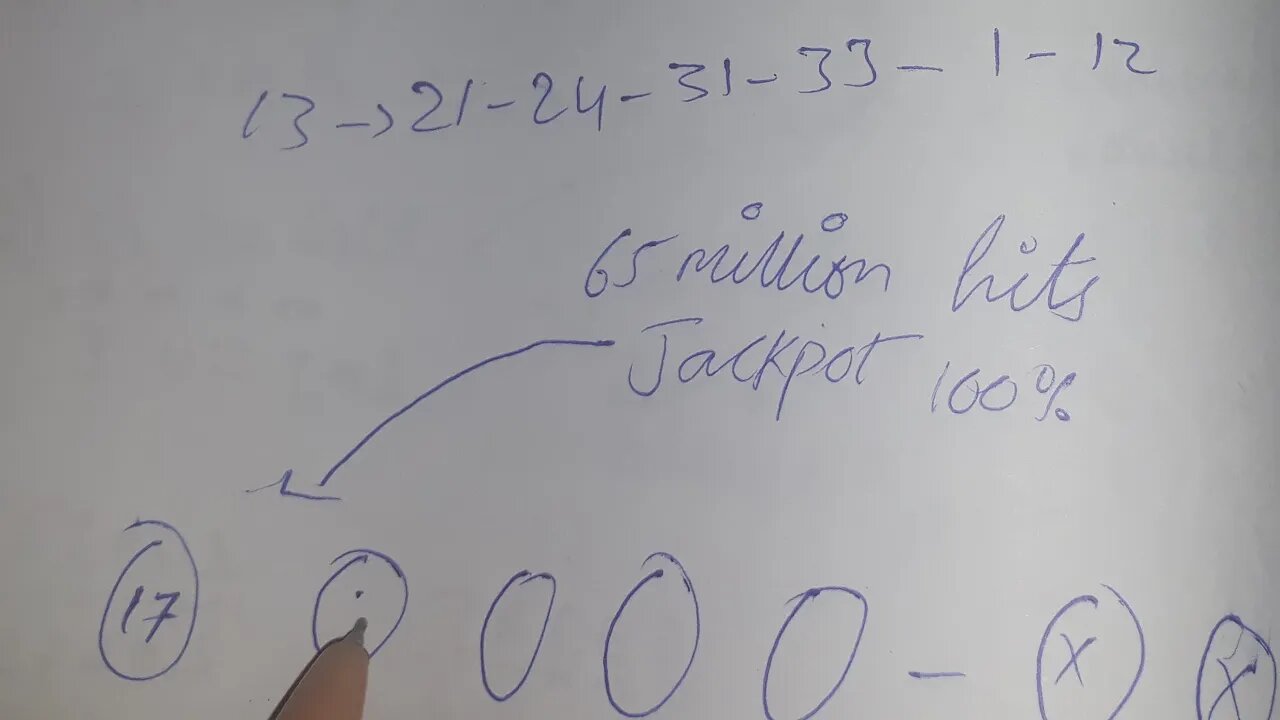 13 → 21 - 24 - 31 - 33 - 1 - 12
65 million hits
Jackpot 100%
17 - X X